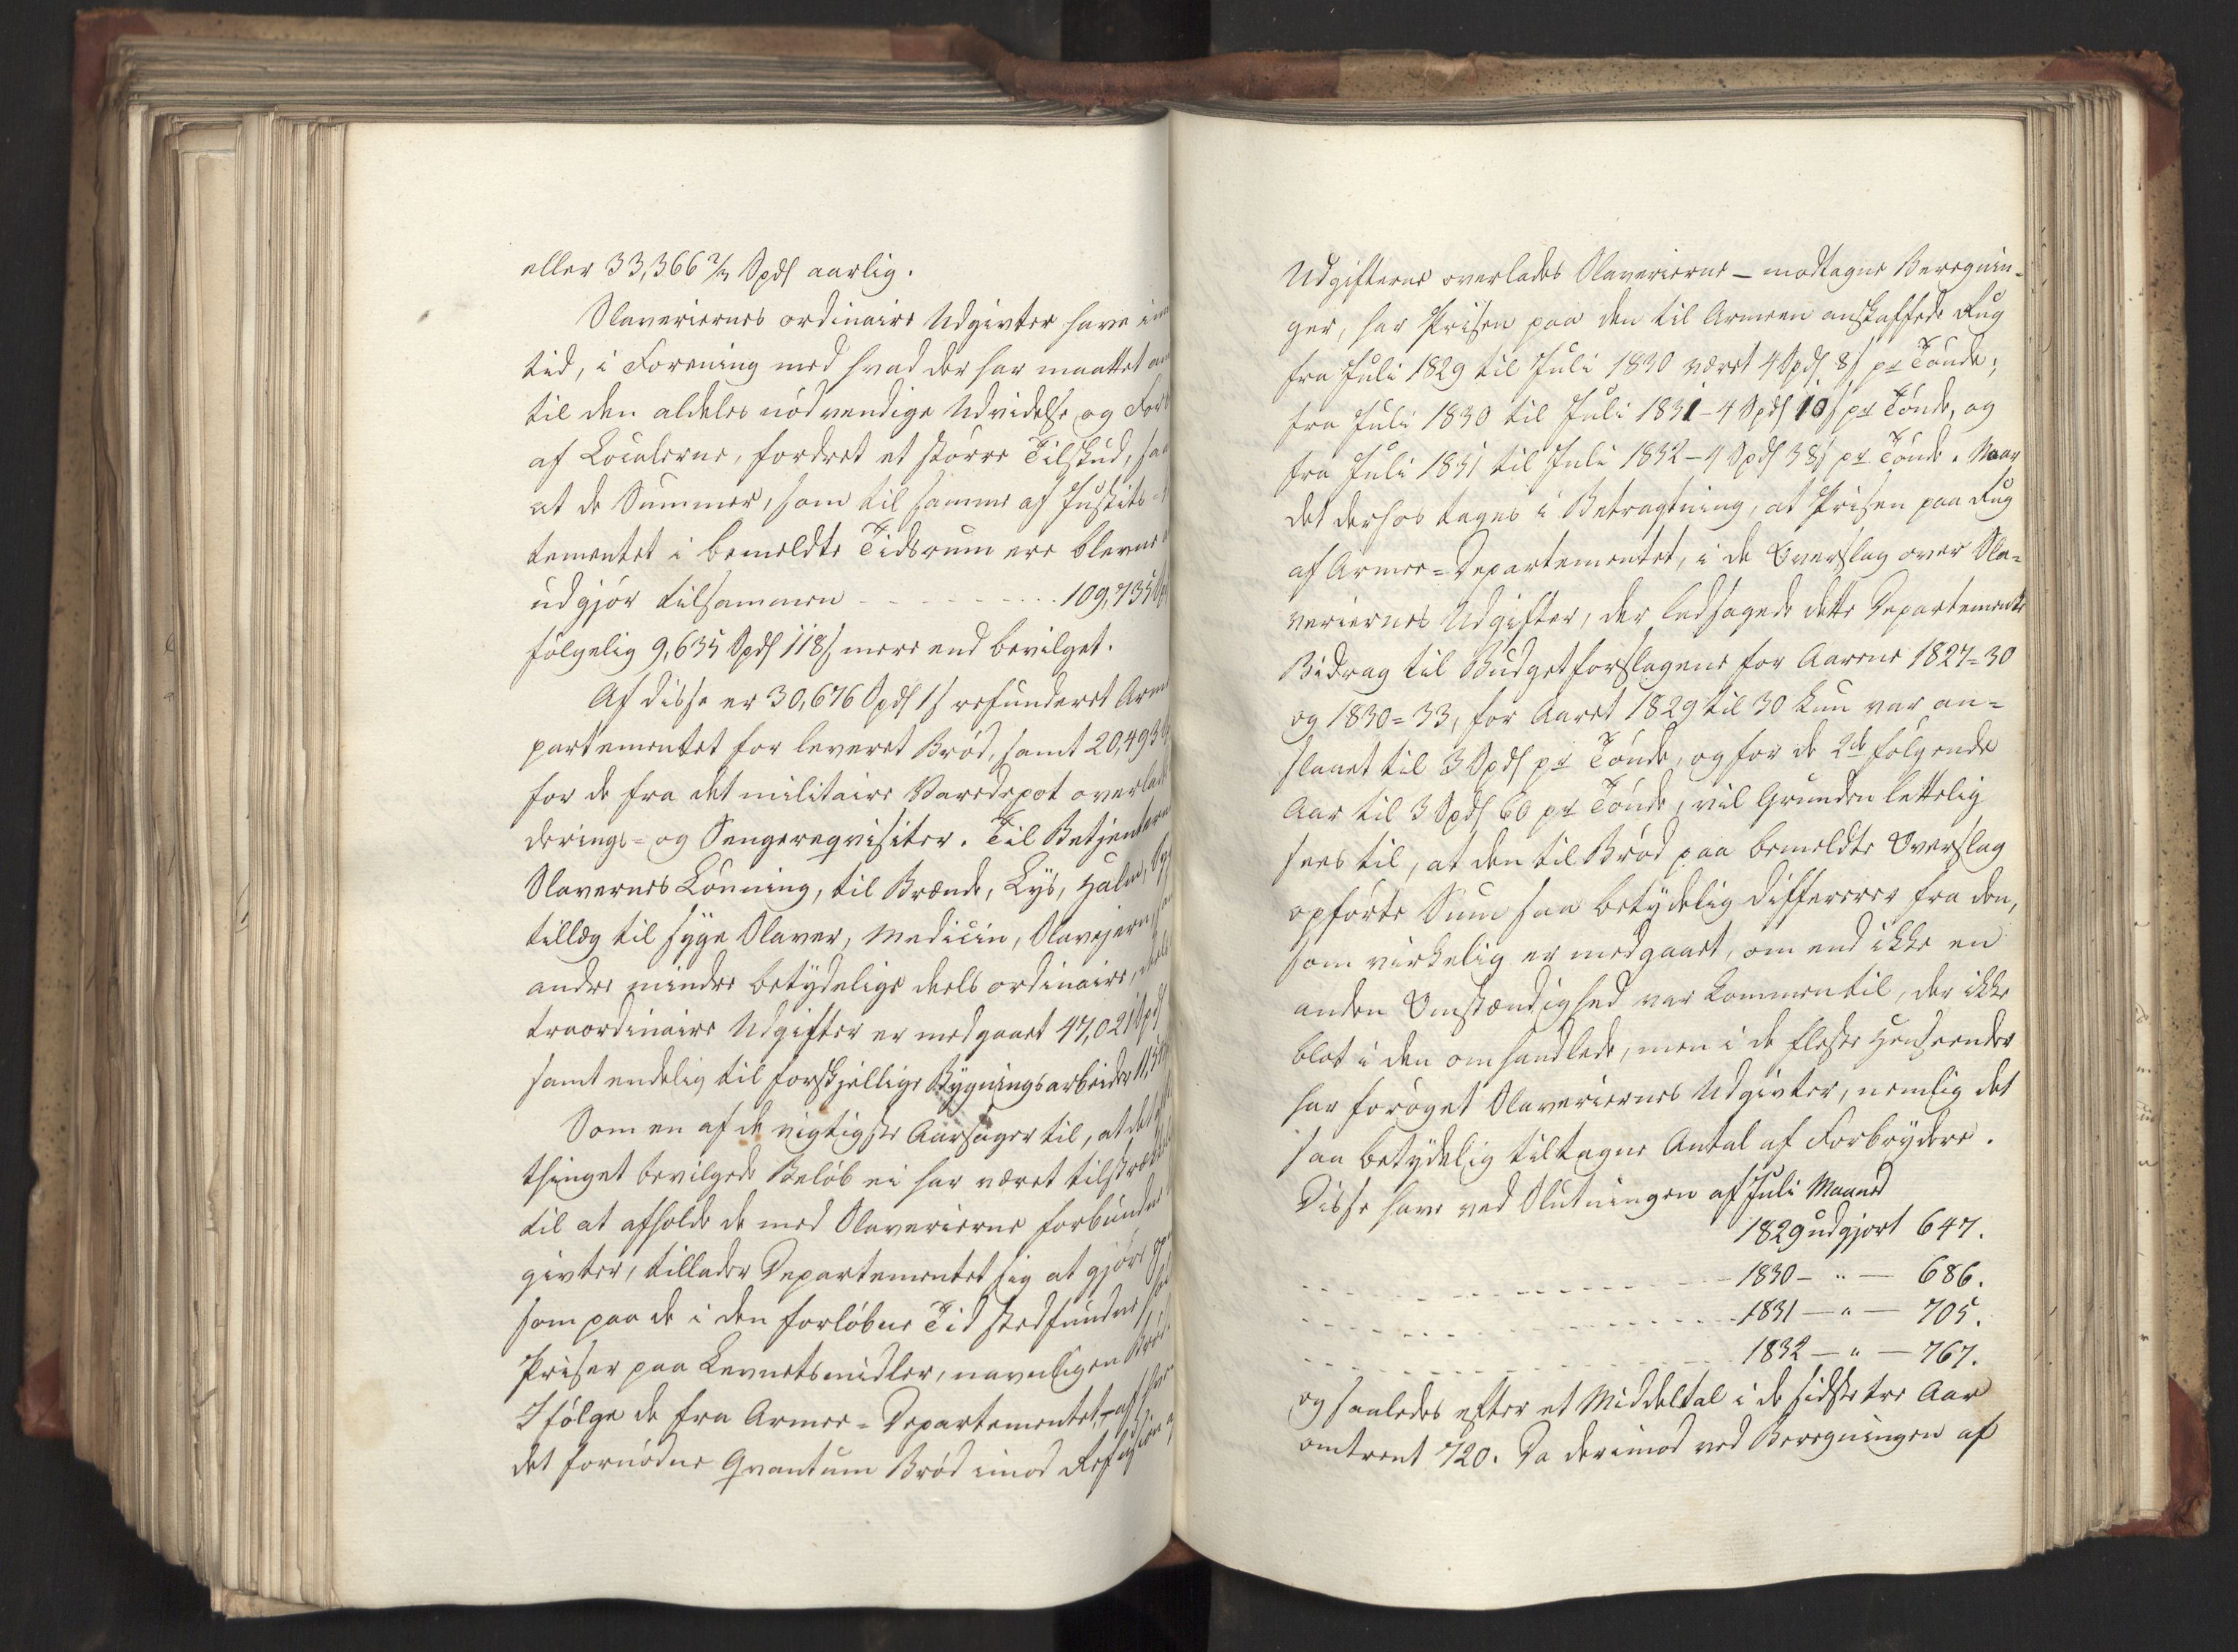 eller 33,366 2/3 Spds aarlig.
Slaveriernes ordinaire Udgivter have i
tid, i Forening med hvad der har maattet
til den aldeles nödvendige Udvidelse og For
af Localerne, fordret et större Tilskud, saa
at de Summer, som til samme af Justits-
tementet i bemeldte Tidsrum ere blevne
udgjör tilsammen - - - - - - - 109,735 Sp
fölgelig 9,635 Spds 118 s mere end bevilget.
Af disse er 30,676 Spds 1 s refunderet Arm
partementet for leveret Bröd, samt 20,493
for de fra det militaire Varedepot overlad
derings- og Sengereqvisiter. Til Betjenterne
Slavernes Lönning, til Brænde, Lys, Halm,
tillæg til syge Slaver, Medicin, Slavejern,
andre mindre betydelige deels ordinaire, deels
traordinaire Udgifter er medgaaet 47,021 Spds
samt endelig til forskjellige Bygningsarbeider 11,5
Som en af de vigtigste Aarsager til, at det
thinget bevilgede Belöb ei har været tilstræk
til at afholde de med Slaverierne forbundne
givter, tillader Departementet sig at gjöre
som paa de i den forlöbne Tid stedfundne
Priser paa Levnetsmidler, navnligen Bröd.
Ifölge de fra Armee-Departementet, - af
det fornödne Qvantum Bröd imod Ref
Udgifterne overlades Slaverierne - modtagne Beregnin-
ger, har Prisen paa den til Armeen anskaffede Rug
fra Juli 1829 til Juli 1830 været 4 Spds 8 s pr Tönde,
fra Juli 1830 til Juli 1831 - 4 Spds 10 s pr Tönde, og
fra Juli 1831 til Juli 1832 - 4 Spds 38 s pr Tönde. Naar
det derhos tages i Betragtning, at Prisen paa Rug
af Armee-Departementet, i de Overslag over Sla-
veriernes Udgifter, der ledsagede dette Departements
Bidrag til Budgetforslagene for Aarene 1827-30
og 1830-33, for Aaret 1829 til 30 kun var an-
slaaet til 3 Spds pr Tönde, og for de 2de fölgende
Aar til 3 Spds 60 pr Tönde, vil Grunden lettelig
sees til, at den til Bröd paa bemeldte Overslag
opförte Sum saa betydelig differerer fra den,
som virkelig er medgaaet, om end ikke en
anden Omstændighed var kommen til, der ikke
blot i den omhandlede, men i de fleste Henseender
har foröget Slaveriernes Udgivter, nemlig det
saa betydelig tiltagne Antal af Forbrydere.
Disse have ved Slutningen af Juli Maaned
1829 udgjort 647.
- - - - - - - - - 1830 - " - 686.
- - - - - - - - - 1831 - " - 705.
- - - - - - - - - 1832 - " - 767.
og saaledes efter et Middeltal i de sidste tre Aar
omtrent 720. Da derimod ved Beregningen af